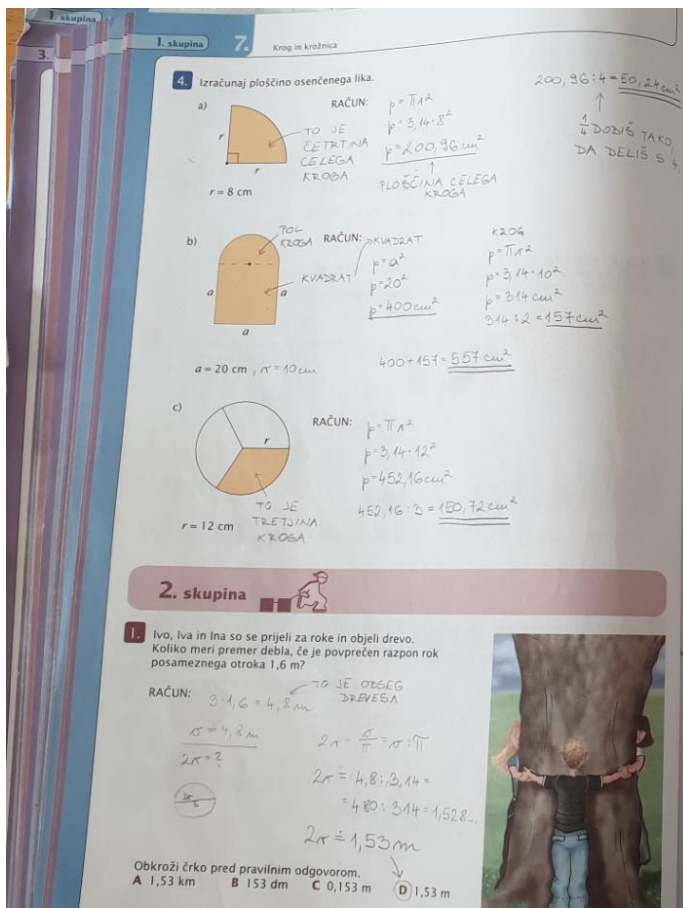 1. skupina
3.
1. skupina
7.
Krog in krožnica
4. Izračunaj ploščino osenčenega lika.
200,96:4=50,24cm²
1/4 DOBIŠ TAKO,
DA DELIŠ S 4.
a)
r
r
r = 8 cm
TO JE
ČETRTINA
CELEGA
KROGA
RAČUN:
p=πr²
p=3,14·8²
p=200,96cm²
PLOŠČINA CELEGA
KROGA
b)
POL
KROGA
KVADRAT
a
a
a
RAČUN:
KVADRAT
p=a²
p=20²
p=400cm²
KROG
p=πr²
p=3,14·10²
p=314cm²
314:2=157cm²
a = 20 cm, r=10cm
400+157=557cm²
c)
r
r = 12 cm
TO JE
TRETJINA
KROGA
RAČUN:
p=πr²
p=3,14·12²
p=452,16cm²
452,16:3=150,72cm²
2. skupina
1. Ivo, Iva in Ina so se prijeli za roke in objeli drevo.
Koliko meri premer debla, če je povprečen razpon rok
posameznega otroka 1,6 m?
RAČUN:
3·1,6=4,8m
TO JE OBSEG
DREVESA
o=4,8m
2r=?
2r
2r=o/π=o:π
2r=4,8:3,14=
=480:314=1,528...
2r≐1,53m
Obkroži črko pred pravilnim odgovorom.
A 1,53 km B 153 dm C 0,153 m D 1,53 m